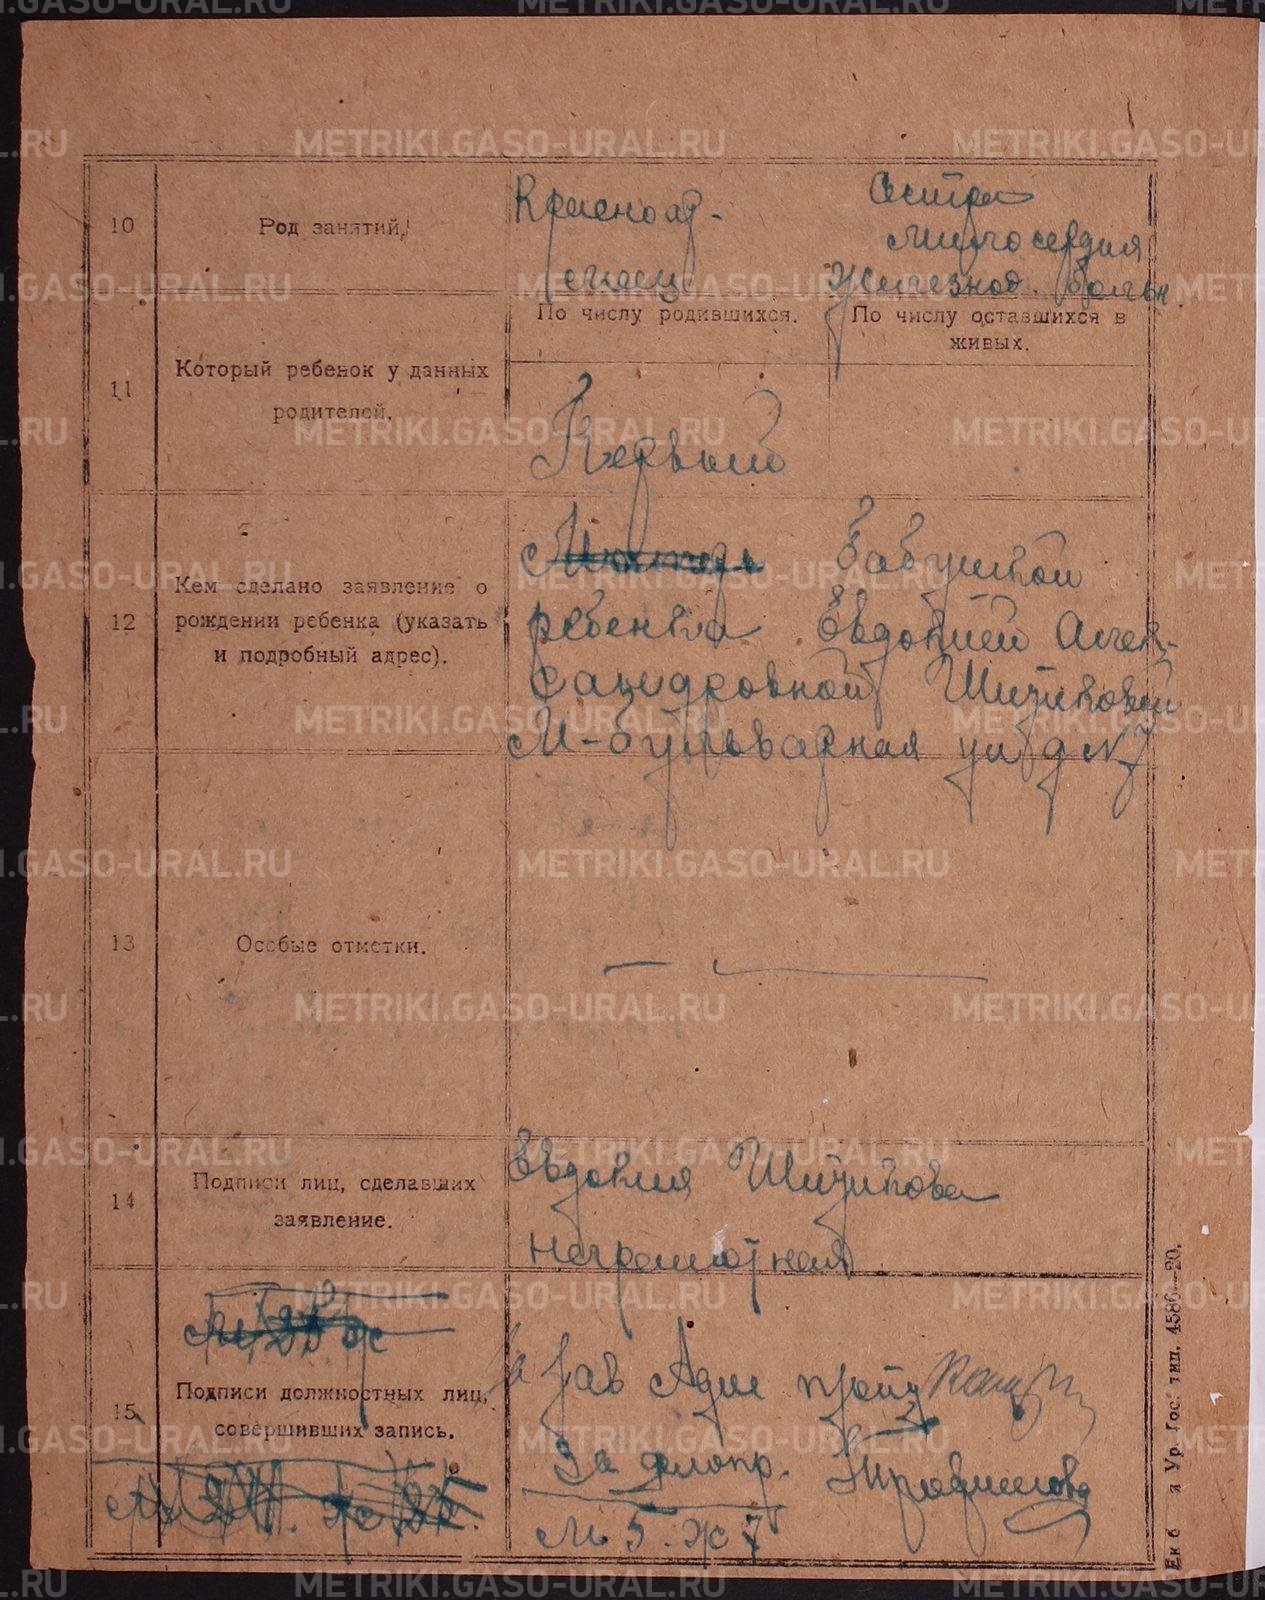 10
Род занятий.
Красноар-
меец
Сестра
милосердия
Железнод. больн.
11
Который ребенок у данных
родителей.
По числу родившихся.
По числу оставшихся в
живых.
Первый
12
Кем сделано заявление о
рождении ребенка (указать
и подробный адрес).
Матерь Бабушкой
ребенка Евдокией Алек-
сандровной
М-бульварная ул д N 7
13
Особые отметки.
14
Подписи лиц, сделавших
заявление.
Евдокия
неграмотная
15
Подписи должностных лиц,
совершивших запись.
За Зав
За делопр. Трофимова
М 5. Ж 7
Ур. Гос. тип. 4586—20.
METRIKI.GASO-URAL.RU